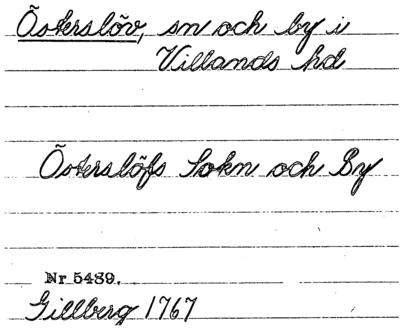 Österslöv, sn och by i
Villands hd
Österslöfs Sokn och By
Nr 5489.
Gillberg 1767